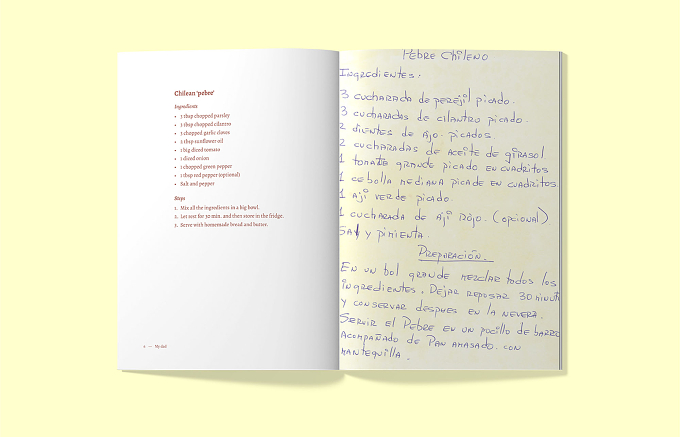 Chilean 'pebre'
Ingredients
• 3 tbsp chopped parsley
• 3 tbsp chopped cilantro
• 2 chopped garlic cloves
• 2 tbsp sunflower oil
• 1 big diced tomato
• 1 diced onion
• 1 chopped green pepper
• 1 tbsp red pepper (optional)
• Salt and pepper
Steps
1. Mix all the ingredients in a big bowl.
2. Let rest for 30 min. and then store in the fridge.
3. Serve with homemade bread and butter.
Pebre Chileno
Ingredientes:
3 cucharada de perejil picado.
3 cucharadas de cilantro picado.
2 dientes de ajo. picados.
2 cucharadas de aceite de girasol
1 tomate grande picado en cuadritos
1 cebolla mediana picade en cuadritos
1 ají verde picado.
1 cucharada de ají rojo. (opcional)
Sal y pimienta.
Preparación.
En un bol grande mezclar todos los
ingredientes. Dejar reposar 30 minut
y conservar despues en la nevera.
Servir el Pebre en un pocillo de barro
acompañado de Pan amasado. con
mantequilla.